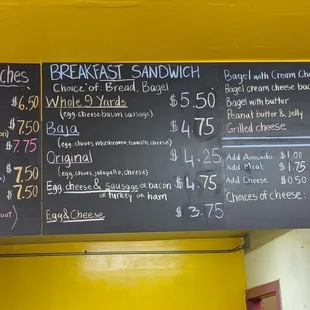 ches
$6.50
$7.50
$7.75
$7.50
$7.50
BREAKFAST SANDWICH
Choice of: Bread, Bagel
Whole 9 Yards $5.50
(egg, cheese bacon, sausage)
Baja $4.75
(egg, chives, mushrooms, tomato, cheese)
Original $4.25
(egg, chives, jalapeño, cheese)
Egg, cheese & sausage or bacon $4.75
or turkey or ham
Egg & Cheese $3.75
Bagel with Cream Ch
Bagel cream cheese bac
Bagel with butter
Peanut butter & jelly
Grilled cheese
Add Avocado $1.00
Add Meat $1.75
Add Cheese $0.50
Choices of cheese: